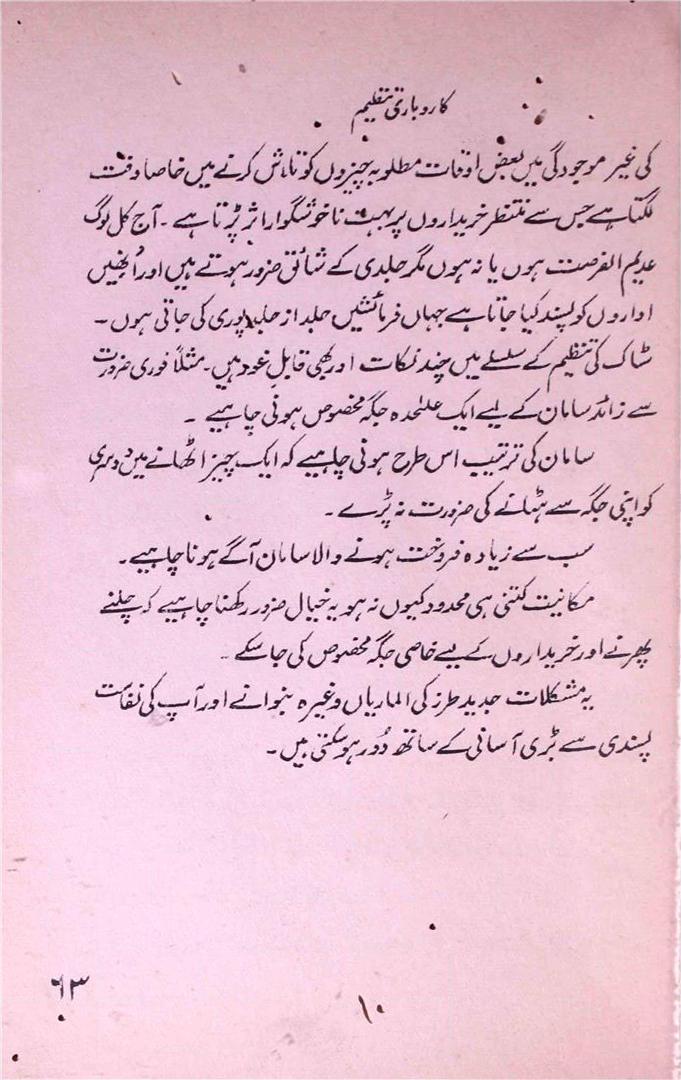 کاروباری تنظیم
کی غیر موجودگی میں بعض اوقات مطلوبہ چیزوں کو تلاش کرنے میں خاصا وقت
لگتا ہے جس سے منتظر خریداروں پر بہت ناخوشگوار اثر پڑتا ہے ۔ آج کل لوگ
عدیم الفرصت ہوں یا نہ ہوں مگر جلدی کے شائق ضرور ہوتے ہیں اور اُنھیں
اداروں کو پسند کیا جاتا ہے جہاں فرمائشیں جلد از جلد پوری کی جاتی ہوں ۔
سٹاک کی تنظیم کے سلسلے میں چند نکات اور بھی قابلِ غور ہیں ۔ مثلاً فوری ضرورت
سے زائد سامان کے لیے ایک علیٰحدہ جگہ مخصوص ہونی چاہیے ۔
سامان کی ترتیب اس طرح ہونی چاہیے کہ ایک چیز اٹھانے میں دوسری
کو اپنی جگہ سے ہٹانے کی ضرورت نہ پڑے ۔
سب سے زیادہ فروخت ہونے والا سامان آگے ہونا چاہیے ۔
مکانیت کتنی ہی محدود کیوں نہ ہو یہ خیال ضرور رکھنا چاہیے کہ چلنے
پھرنے اور خریداروں کے لیے خاصی جگہ مخصوص کی جا سکے ۔
یہ مشکلات جدید طرز کی الماریاں وغیرہ بنوانے اور آپ کی نفاست
پسندی سے بڑی آسانی کے ساتھ دُور ہو سکتی ہیں ۔
۶۳
۱۰